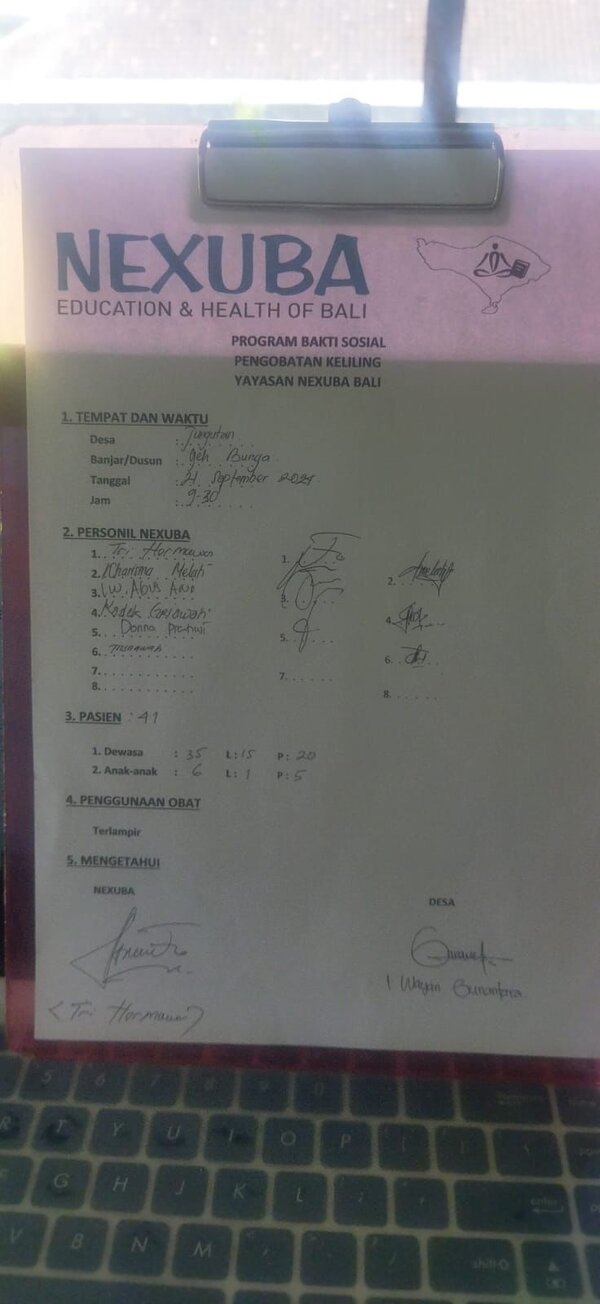 NEXUBA
EDUCATION & HEALTH OF BALI
PROGRAM BAKTI SOSIAL
PENGOBATAN KELILING
YAYASAN NEXUBA BALI
1. TEMPAT DAN WAKTU
Desa : Jungutan
Banjar/Dusun : Geh Bunga
Tanggal : 21 September 2021
Jam : 9-30
2. PERSONIL NEXUBA
1. Tri Hermawan 1.
2. Kharisma Melati 2.
3. I W. 3.
4. Kadek 4.
5. Donna Pratiwi 5.
6. 6.
7. 7.
8. 8.
3. PASIEN : 41
1. Dewasa : 35 L : 15 P : 20
2. Anak-anak : 6 L : 1 P : 5
4. PENGGUNAAN OBAT
Terlampir
5. MENGETAHUI
NEXUBA
DESA
I Wayan
Tri Hermawan
5 6 7 8 9 0
R T Y U I O P [ ] \
G H J K L ; ' enter
V B N M , . / shift